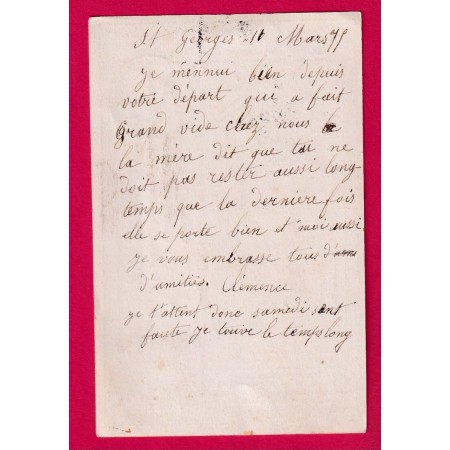 St Georges 11 Mars 75
Je m'ennui bien depuis
votre départ qui a fait
Grand vide chez nous
la mère dit que toi ne
doit pas rester aussi long
temps que la dernière fois
elle se porte bien et moi aussi
Je vous embrasse tous
d'amitiés. Clémence
je t'attent donc samedi sant
faute je touve le temps long